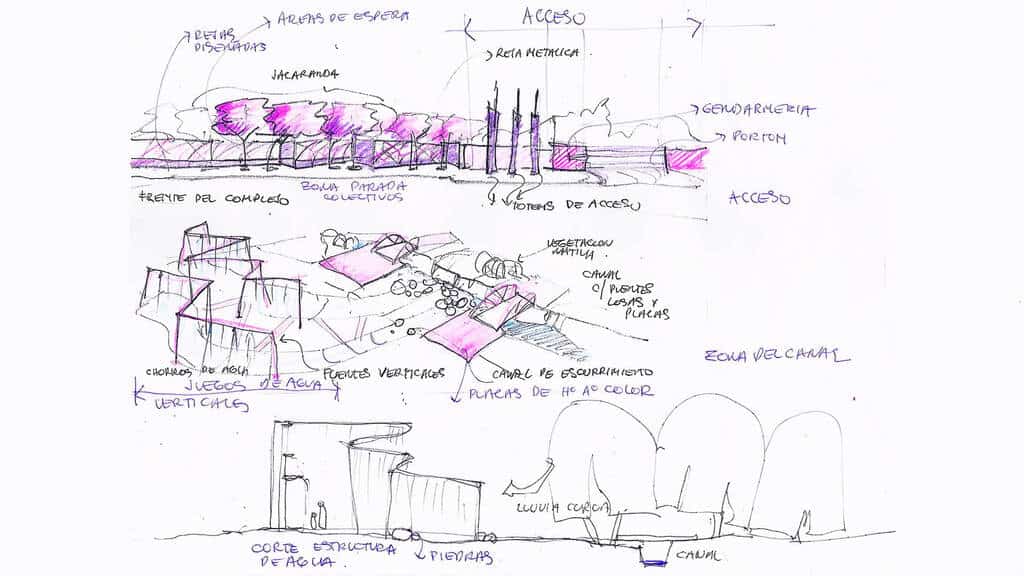 AREAS DE ESPERA
ACCESO
REJAS
DISEÑADAS
REJA METALICA
JACARANDA
GENDARMERIA
PORTON
ZONA PARADA
COLECTIVOS
FRENTE DEL COMPLEJO
TOTEMS DE ACCESO
ACCESO
VEGETACION
NATIVA
CANAL
C/ PUENTES
LOSAS Y
PLACAS
ZONA DEL CANAL
CHORROS DE AGUA
FUENTES VERTICALES
CANAL DE ESCURRIMIENTO
JUEGOS DE AGUA
VERTICALES
PLACAS DE Hº Aº COLOR
LLUVIA CURVA
CORTE ESTRUCTURA
DE AGUA.
PIEDRAS
CANAL